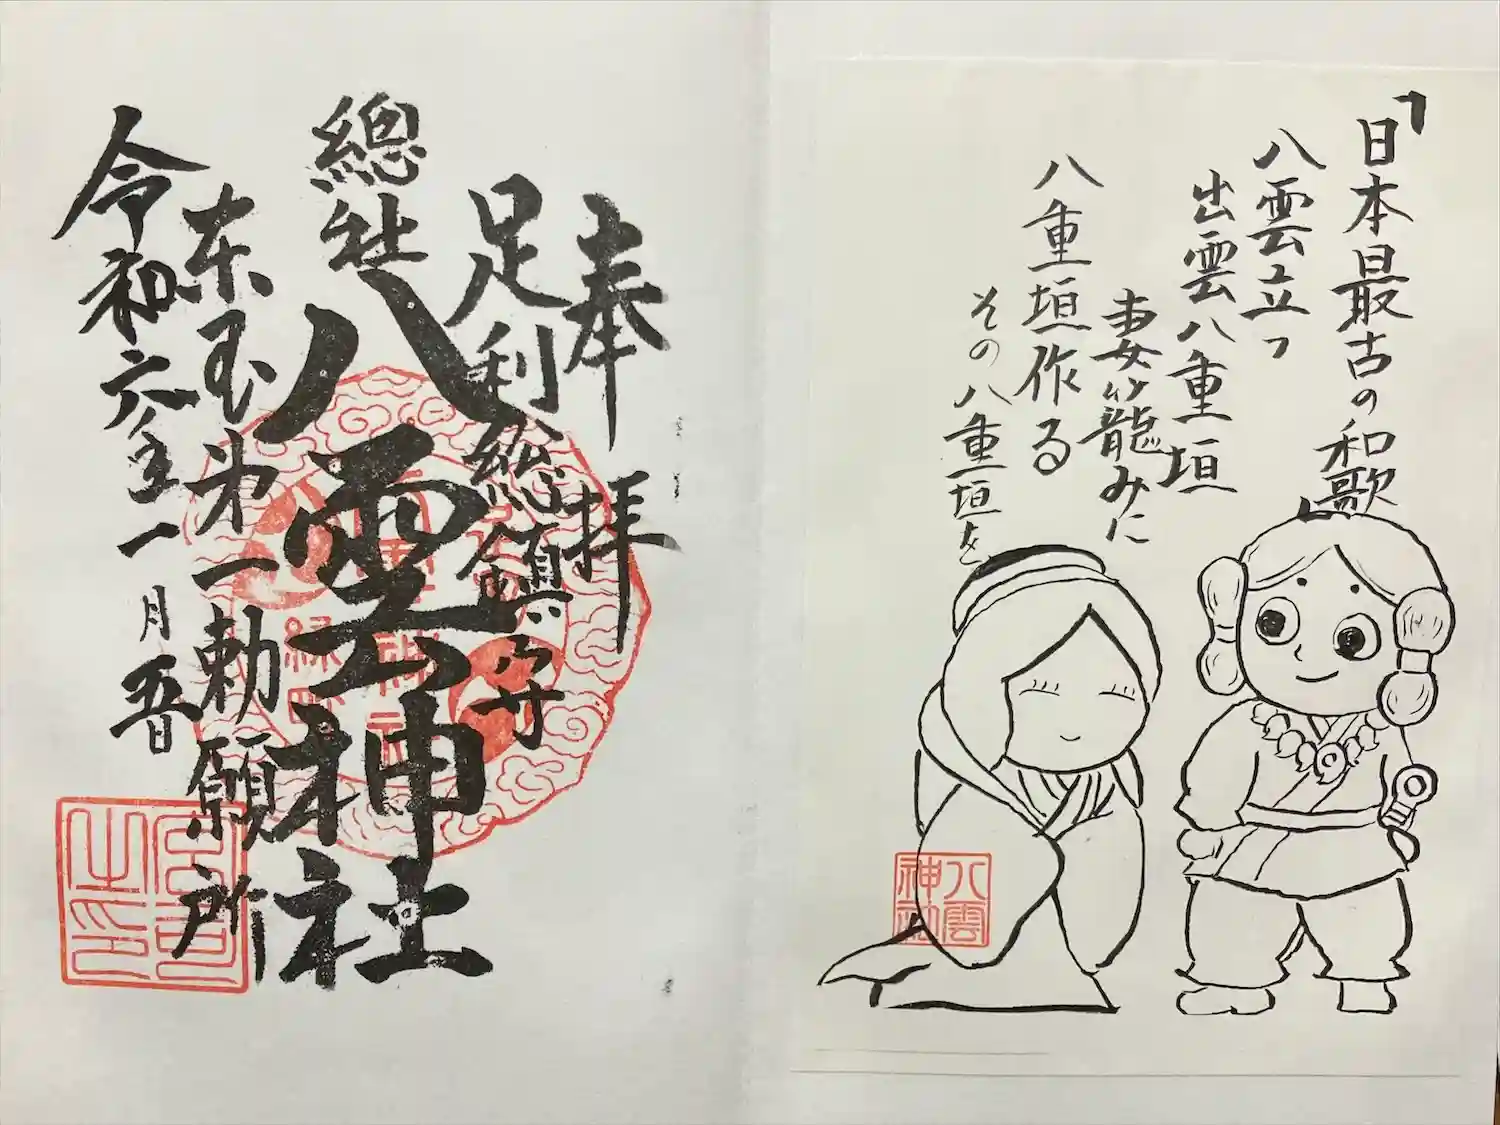 「日本最古の和歌」
八雲立つ
出雲八重垣
妻籠みに
八重垣作る
その八重垣を
八雲神社
奉拝
足利総鎮守
總社八雲神社
東国第一勅願所
令和六年一月五日